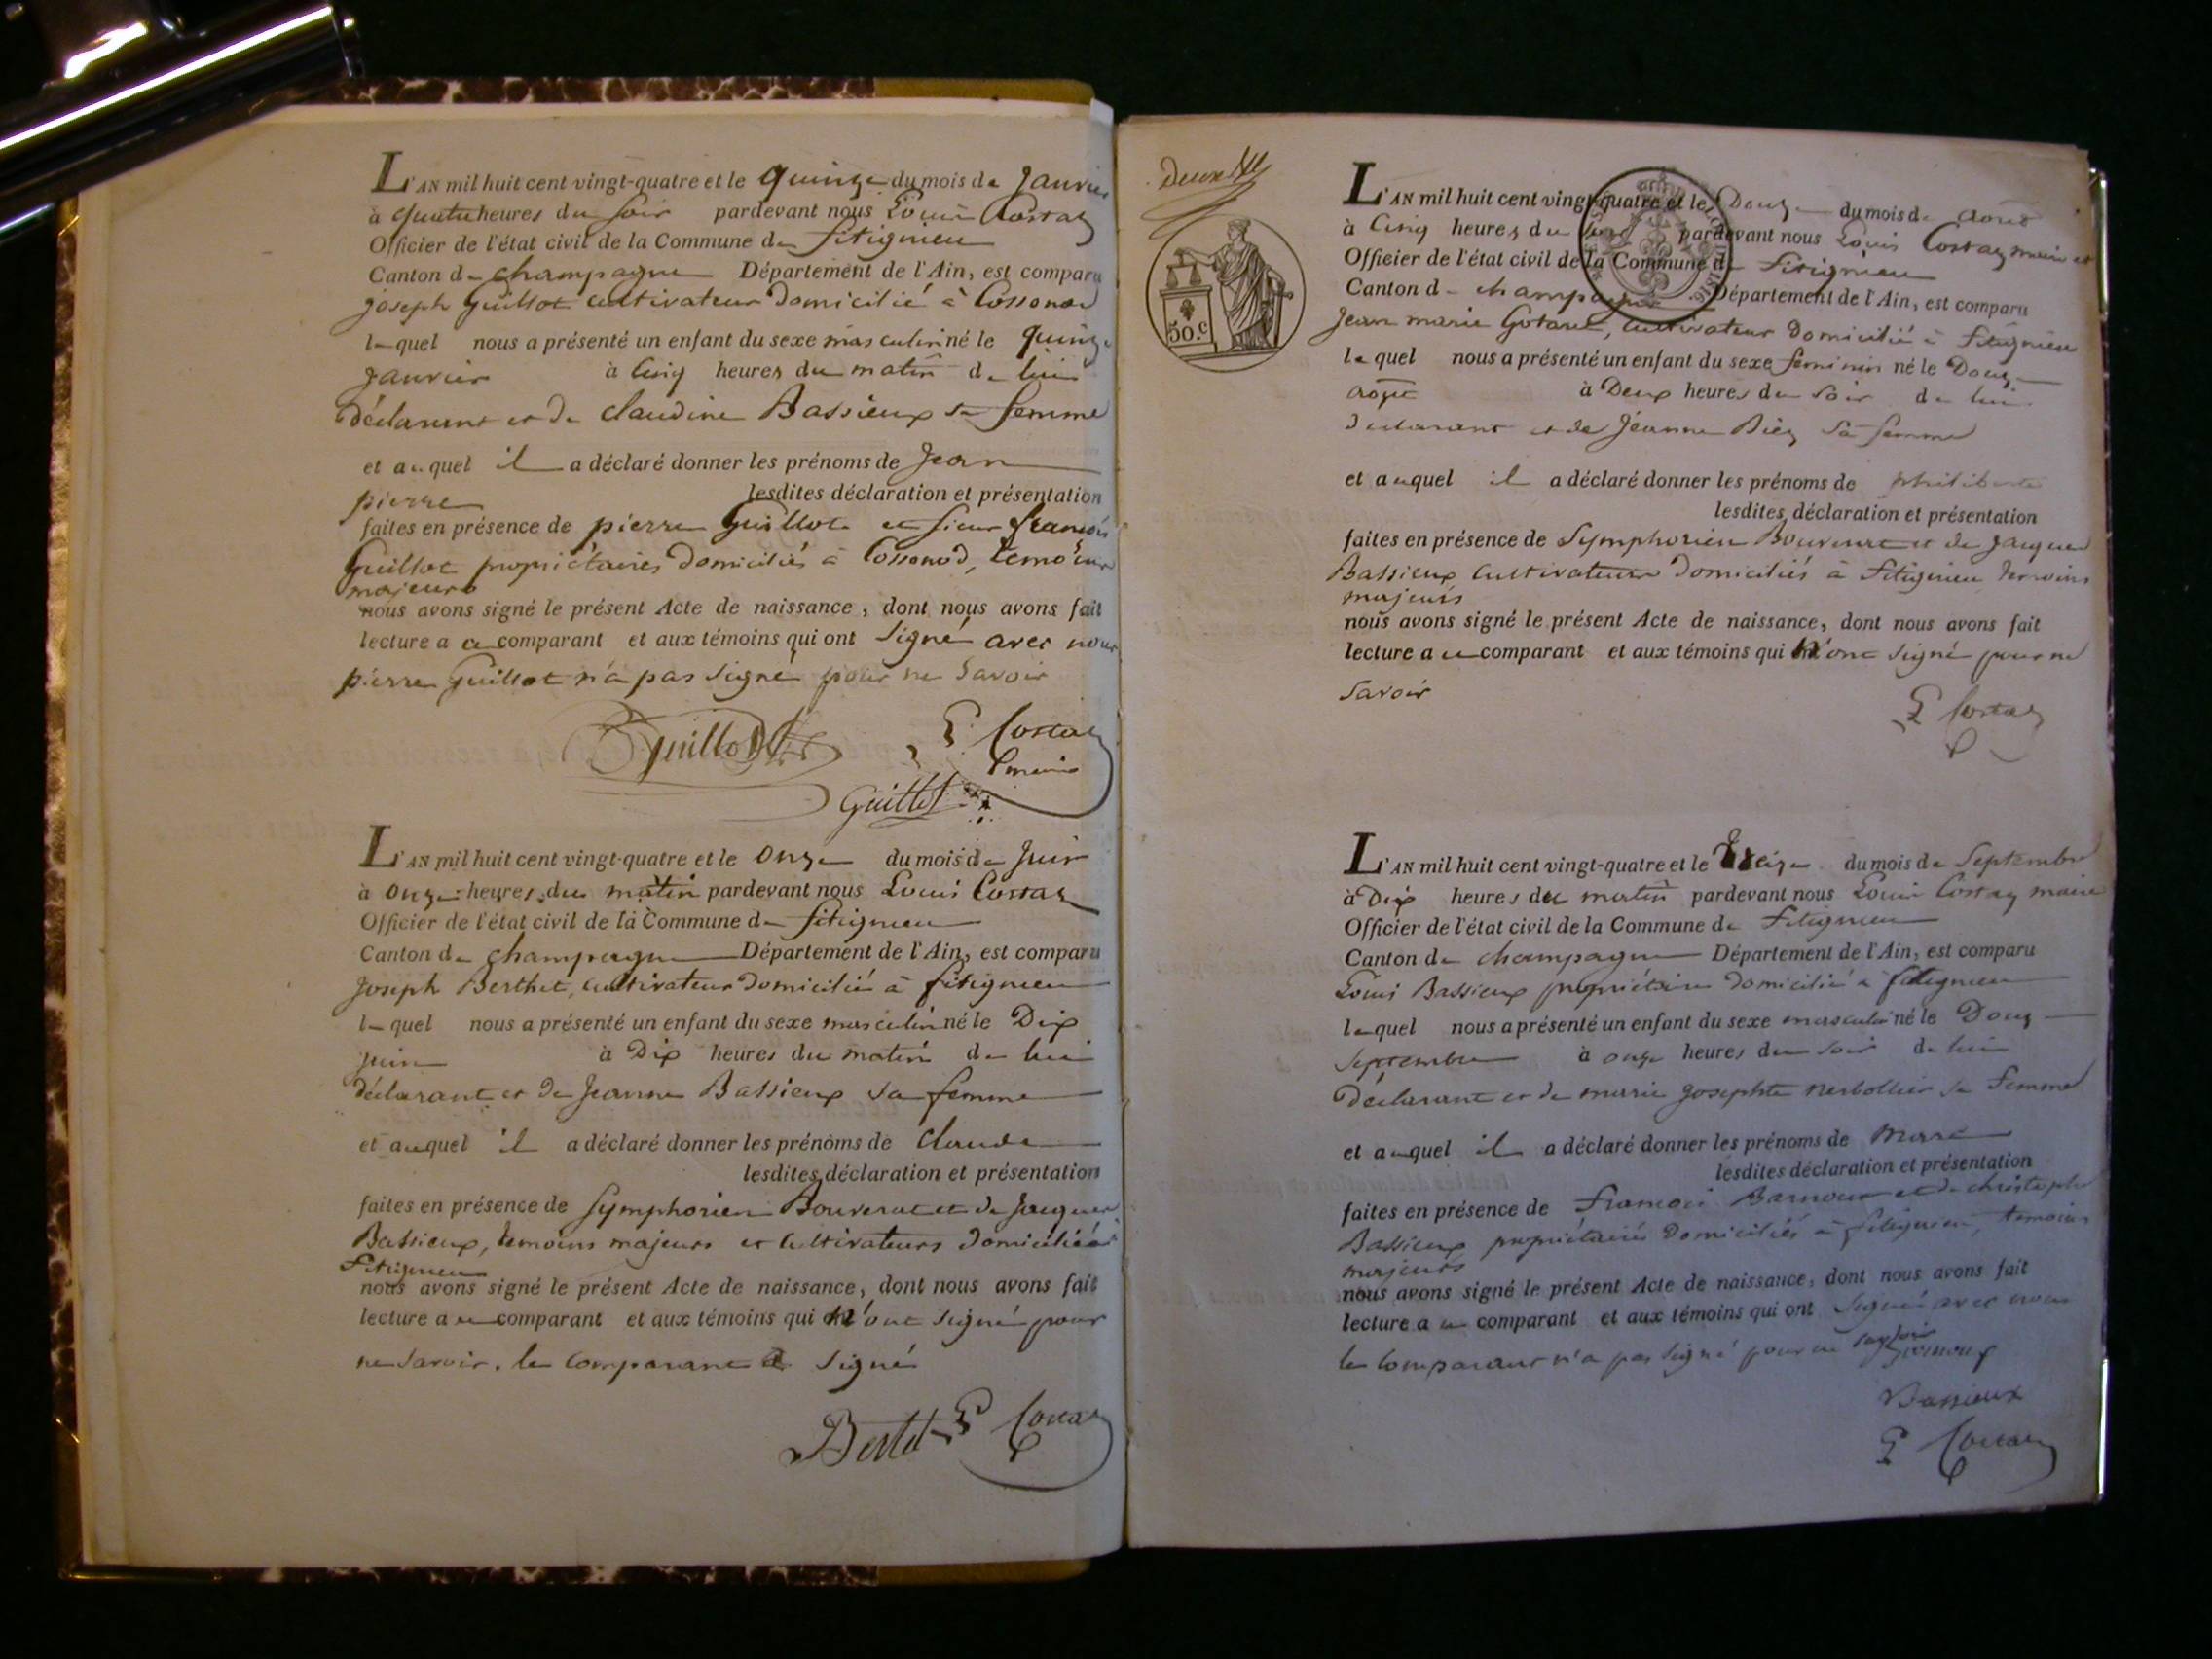 L'AN mil huit cent vingt-quatre et le quinze du mois de Janvier
à quatre heures du soir pardevant nous Louis Costaz
Officier de l'état civil de la Commune de fitignieu
Canton de champagne Département de l'Ain, est comparu
joseph Guillot cultivateur domicilié à Cossonod
lequel nous a présenté un enfant du sexe masculin né le quinze
Janvier à Cinq heures du matin de lui
déclarant et de claudine Bassieux sa femme
et auquel il a déclaré donner les prénoms de Jean
pierre lesdites déclaration et présentation
faites en présence de pierre Guillot et sieur françois
Guillot propriétaires domiciliés à Cossonod, temoins
majeurs
nous avons signé le présent Acte de naissance, dont nous avons fait
lecture a ce comparant et aux témoins qui ont signé avec nous
pierre Guillot n'a pas signé pour ne savoir
Guillot
Costaz
maire
Guillot
L'AN mil huit cent vingt-quatre et le onze du mois de Juin
à onze heures du matin pardevant nous Louis Costaz
Officier de l'état civil de la Commune de fitignieu
Canton de champagne Département de l'Ain, est comparu
Joseph Berthet, cultivateur domicilié à fitignieu
lequel nous a présenté un enfant du sexe masculin né le Dix
juin à Dix heures du matin de lui
déclarant et de Jeanne Bassieux sa femme
et auquel il a déclaré donner les prénoms de Claude
lesdites déclaration et présentation
faites en présence de Symphorien Bouverat et de Jacques
Bassieux, temoins majeurs et cultivateurs domiciliés à
fitignieu
nous avons signé le présent Acte de naissance, dont nous avons fait
lecture a ce comparant et aux témoins qui n'ont signé pour
ne savoir. le comparant a signé
Bertet Costaz
deux
50.c
L'AN mil huit cent vingt-quatre et le Douze du mois de août
à Cinq heures du soir pardevant nous Louis Costaz maire et
Officier de l'état civil de la Commune de fitignieu
Canton de champagne Département de l'Ain, est comparu
Jean marie Gotaret, cultivateur domicilié à fitignieu
lequel nous a présenté un enfant du sexe feminin né le Douze
août à Deux heures du soir de lui
declarant et de Jéanne Biez sa femme
et auquel il a déclaré donner les prénoms de philiberte
lesdites déclaration et présentation
faites en présence de Symphorien Bouverat et de Jacques
Bassieux cultivateurs domiciliés à fitignieu temoins
majeurs
nous avons signé le présent Acte de naissance, dont nous avons fait
lecture a ce comparant et aux témoins qui n'ont signé pour ne
savoir
Costaz
L'AN mil huit cent vingt-quatre et le treize du mois de Septembre
à Dix heures du matin pardevant nous Louis Costaz maire
Officier de l'état civil de la Commune de fitignieu
Canton de champagne Département de l'Ain, est comparu
Louis Bassieux propriétaire domicilié à fitignieu
lequel nous a présenté un enfant du sexe masculin né le Douze
Septembre à onze heures du soir de lui
Déclarant et de marie Josephte nerbollier sa femme
et auquel il a déclaré donner les prénoms de
lesdites déclaration et présentation
faites en présence de françois et de christophe
Bassieux propriétaires domiciliés à fitignieu, temoins
majeurs
nous avons signé le présent Acte de naissance, dont nous avons fait
lecture a ce comparant et aux témoins qui ont signé avec nous
le comparant n'a pas signé pour ne savoir
Bassieux
Costaz